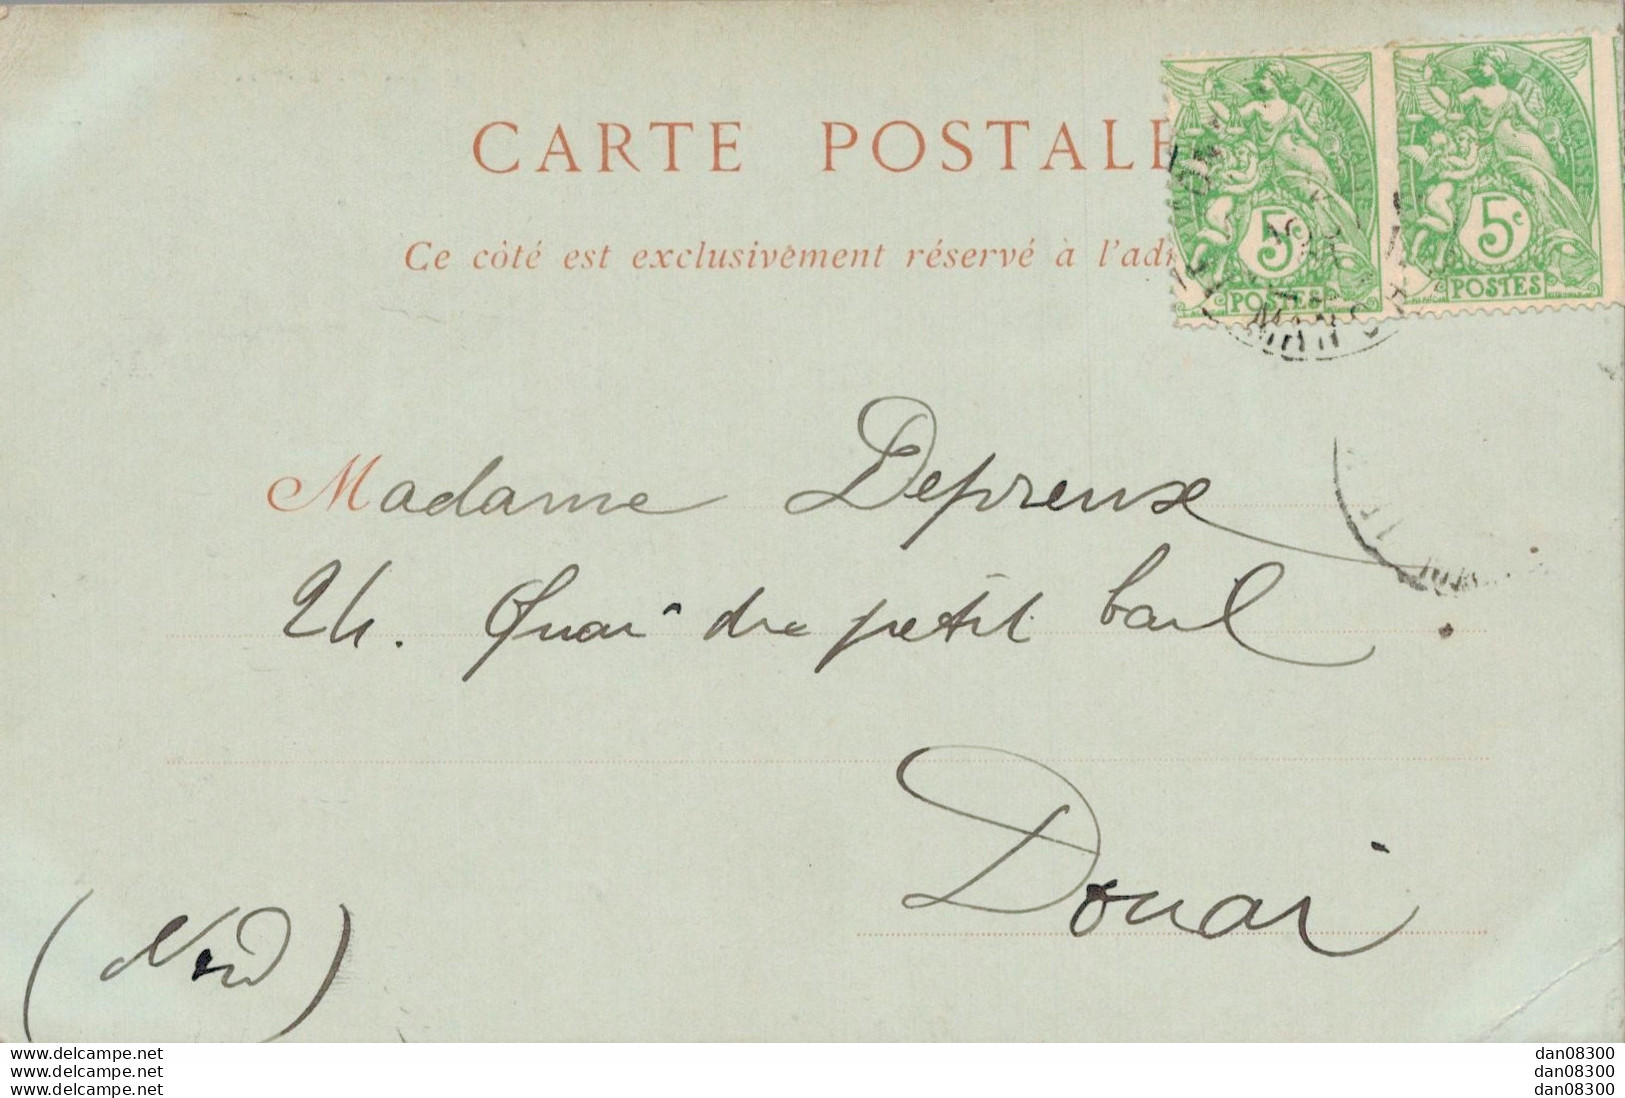 CARTE POSTALE
Ce côté est exclusivement réservé à l'adr
FRANÇAISE
5c
POSTES
FRANÇAISE
5c
POSTES
Madame Depreux
24. Quai du petit bail
Douai
(Nord)
www.delcampe.net
www.delcampe.net
www.delcampe.net
dan08300
dan08300
dan08300